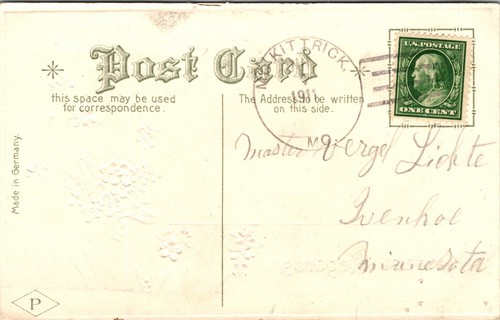 Post Card
this space may be used
for correspondence.
The Address to be written
on this side.
McKITTRICK,
1911
MO.
U.S. POSTAGE
ONE CENT
Made in Germany.
Master Vergel Lichte
Ivenhoe
Minnesota
P